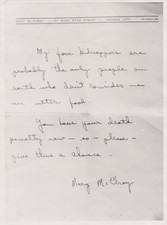 My four kidnappers are
probably the only people on
earth who don't consider me
an utter fool.
You have your death
penalty now – so – please –
give them a chance.
Mary McElroy